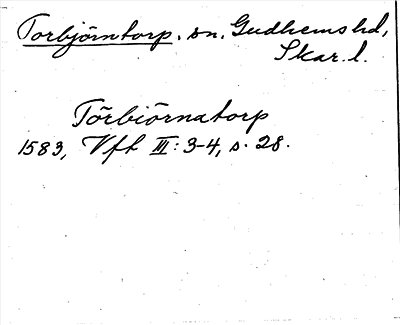 Torbjörntorp. sn. Gudhems hd,
Skar. l.
Törbiörnatorp
1583, Vft III: 3-4, s. 28.